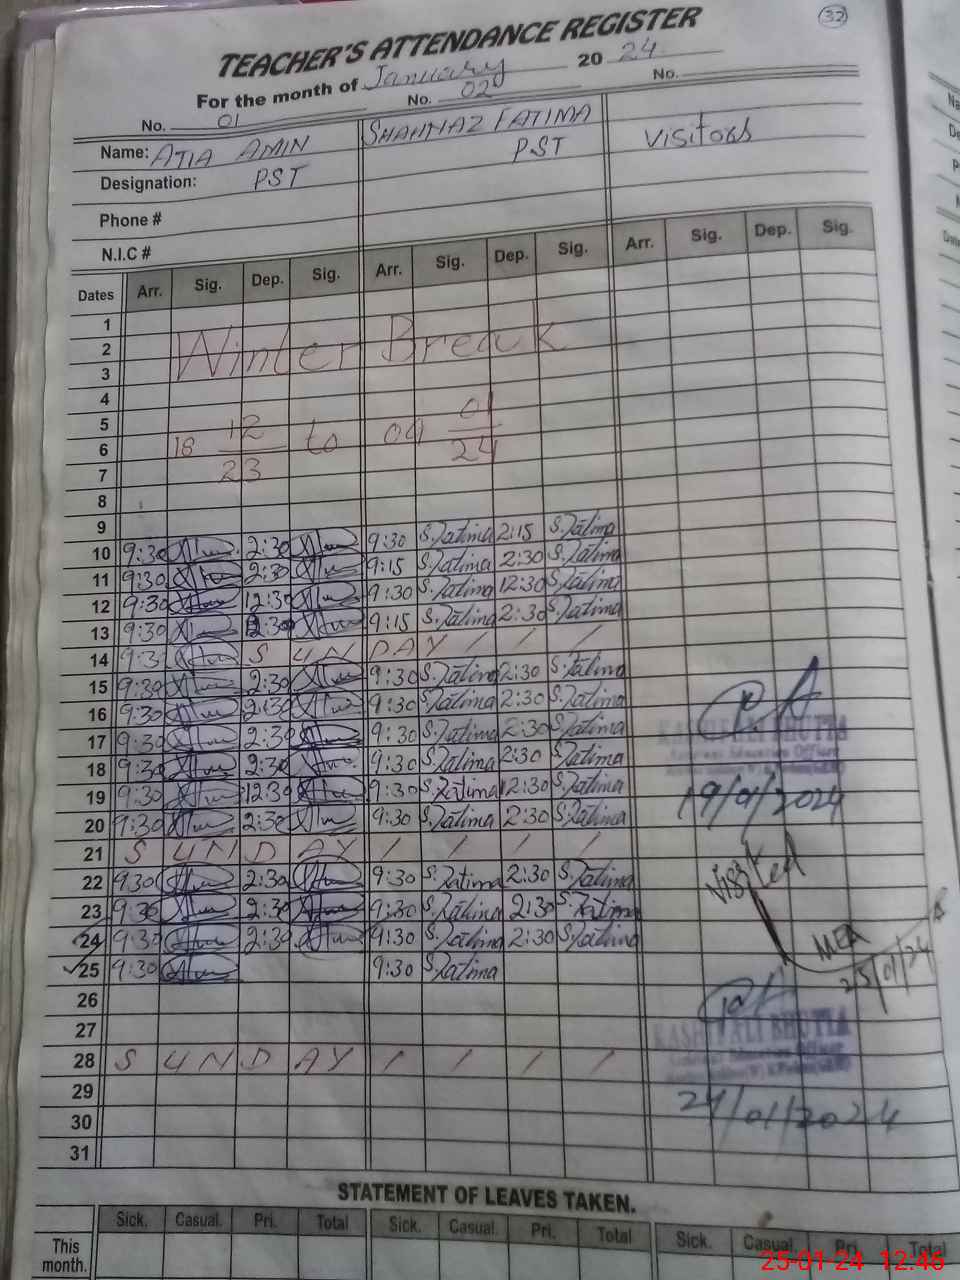 32
TEACHER'S ATTENDANCE REGISTER
For the month of January 20 24
No. 01 No. 02 No.
Name: ATIA AMIN SHAHNAZ FATIMA Visitors
Designation: PST PST
Phone #
N.I.C #
Dates Arr. Sig. Dep. Sig. Arr. Sig. Dep. Sig. Arr. Sig. Dep. Sig.
1
2 Winter Break
3
4
5
6 18 12/23 to 09 01/24
7
8
9
10 9:30 2:30 9:30 S.Fatima 2:15 S.Fatima
11 9:30 2:30 9:15 S.Fatima 2:30 S.Fatima
12 9:30 12:30 9:30 S.Fatima 12:30 S.Fatima
13 9:30 2:30 9:15 S.Fatima 2:30 S.Fatima
14 SUNDAY / / /
15 9:30 2:30 9:30 S.Fatima 2:30 S.Fatima
16 9:30 2:30 9:30 S.Fatima 2:30 S.Fatima
17 9:30 2:30 9:30 S.Fatima 2:30 S.Fatima
18 9:30 2:30 9:30 S.Fatima 2:30 S.Fatima
19 9:30 12:30 9:30 S.Fatima 12:30 S.Fatima
20 9:30 2:30 9:30 S.Fatima 2:30 S.Fatima
21 SUNDAY / / / /
22 9:30 2:30 9:30 S.Fatima 2:30 S.Fatima
23 9:30 2:30 9:30 S.Fatima 2:30 S.Fatima
24 9:30 2:30 9:30 S.Fatima 2:30 S.Fatima
25 9:30 9:30 S.Fatima
26
27
28 SUNDAY / / / /
29
30
31
KASHIF ALI BHUTTA
Education Officer
19/01/2024
Visited
MEA
25/01/24
KASHIF ALI BHUTTA
Education Officer
24/01/2024
STATEMENT OF LEAVES TAKEN.
Sick. Casual. Pri. Total Sick. Casual. Pri. Total Sick. Casual. Pri. Total
This month.
25-01-24 12:46